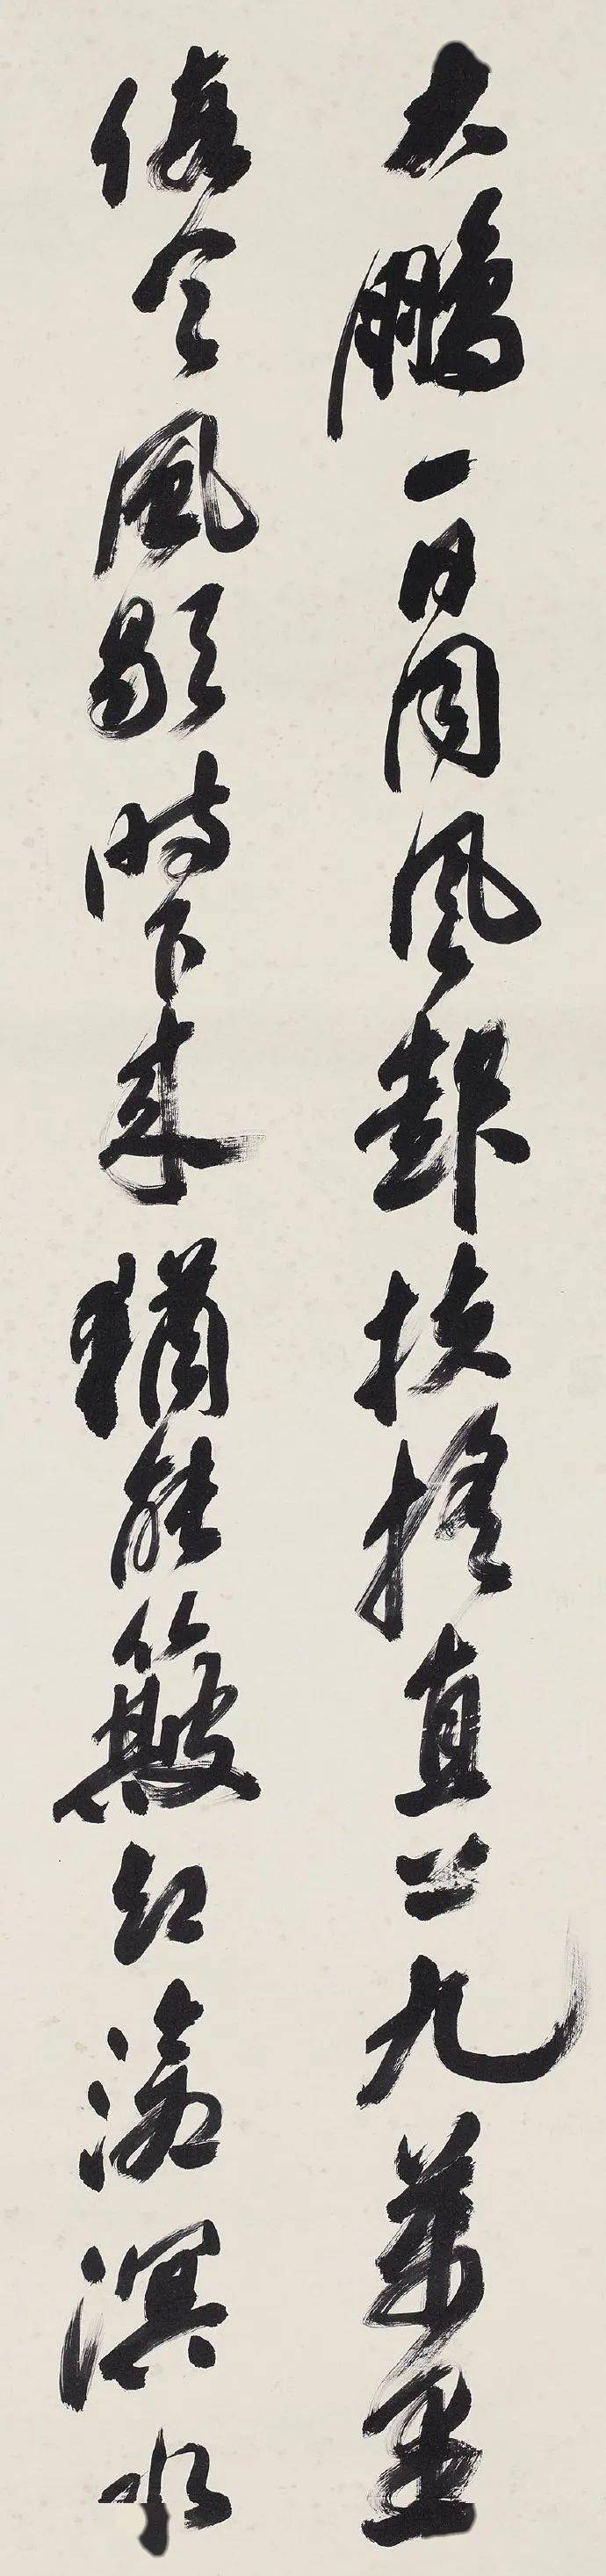 大鵬一日同風起扶搖直上九萬里
假令風歇時下來猶能簸却滄溟水